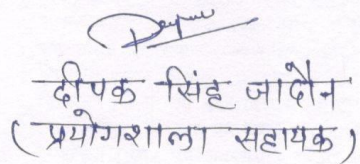 दीपक सिंह जादौन
(प्रयोगशाला सहायक)